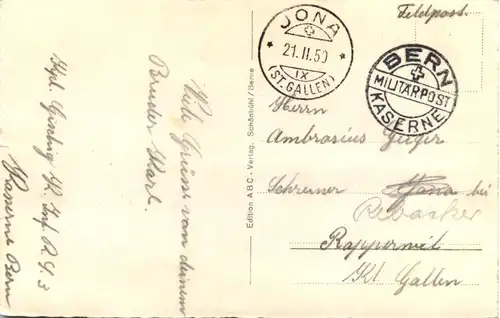 Feldpost.
JONA
21. II. 50
IX
(ST. GALLEN)
BERN
MILITÄRPOST
KASERNE
Herrn
Ambrosius Geiger
Schreiner Jona bei
Rapperswil
Kt. Gallen
Edition ABC-Verlag, Schönbühl/Berne
Viele Grüsse von deinem
Bruder Karl.
Inf. R. S. 3
Kaserne Bern